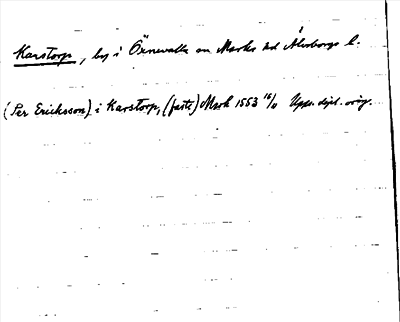 Karstorp, by i Örnevalla sn Marks hd Älvsborgs l.
(Per Ericksson) i Karstorp, (faste) Mark 1553 16/11 Upps. dipl. orig.